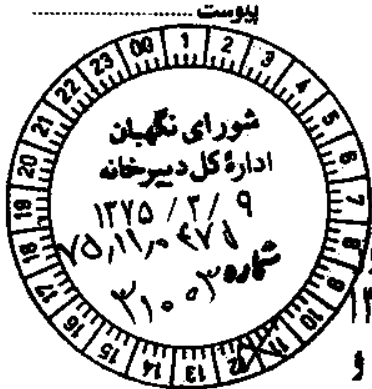 پیوست ........................
00 1 2 3 4 5 6 7 8 9 10 11 12 13 14 15 16 17 18 19 20 21 22 23
شورای نگهبان
ادارهٔ کل دبیرخانه
۱۳۷۵ / ۲ / ۹
شماره
و